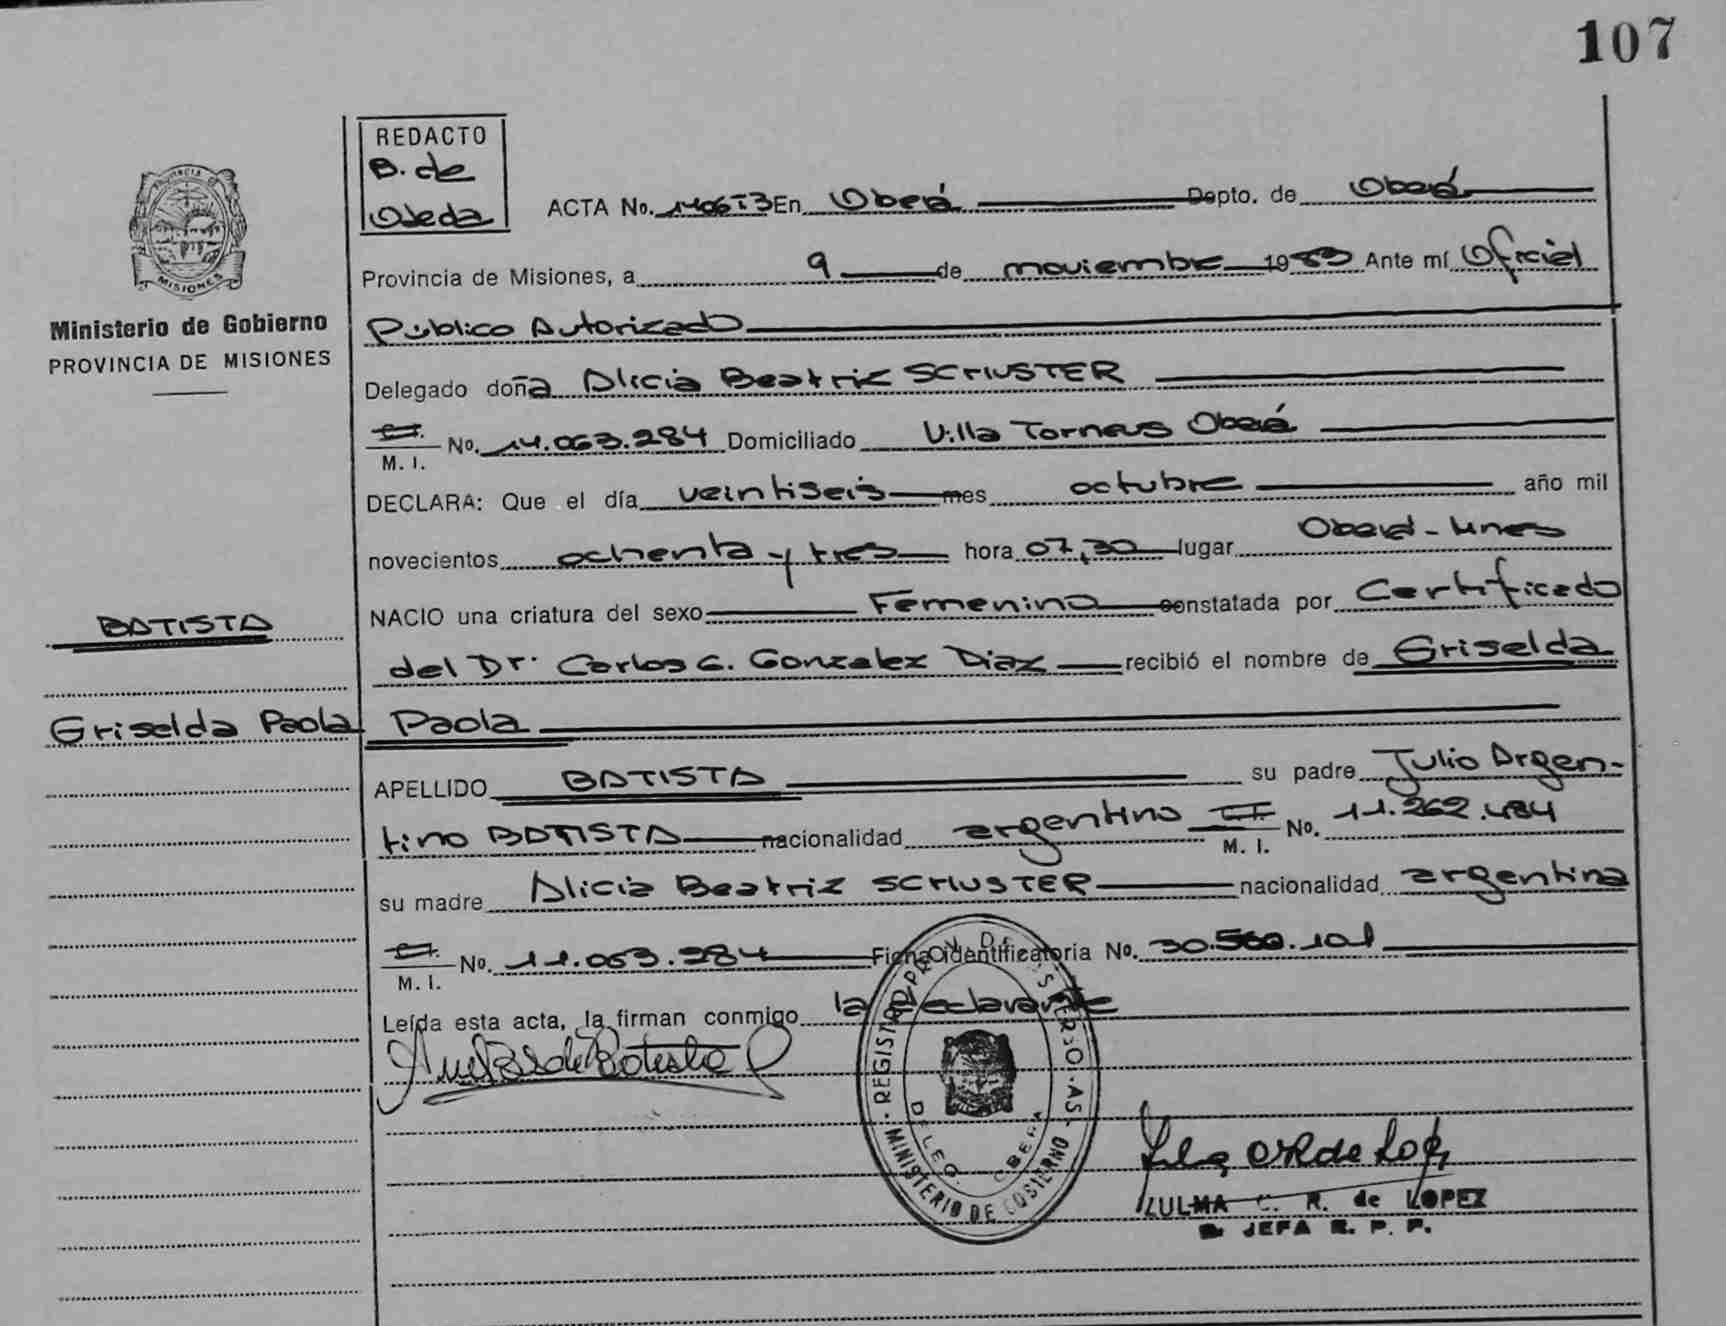 107
REDACTO
B. de
Ojeda
PROVINCIA DE
MISIONES
Ministerio de Gobierno
PROVINCIA DE MISIONES
ACTA No. En Oberá Depto. de Oberá
Provincia de Misiones, a 9 de noviembre 1983 Ante mí Oficial
Público Autorizado
Delegado doña Alicia Beatriz SCHUSTER
M. I. No. 14.063.284 Domiciliado Villa Torneus Oberá
DECLARA: Que el día veintiseis mes octubre año mil
novecientos ochenta y tres hora 07,30 lugar Oberá - Mnes
NACIO una criatura del sexo Femenino constatada por Certificado
BATISTA
del Dr. Carlos G. Gonzalez Diaz recibió el nombre de Griselda
Griselda Paola Paola
APELLIDO BATISTA su padre Julio Argen-
tino BATISTA nacionalidad argentino M. I. No. 11.262.484
su madre Alicia Beatriz SCHUSTER nacionalidad argentina
M. I. No. 11.063.284 Ficha identificatoria No. 30.560.101
Leída esta acta, la firman conmigo la declarante
REGISTRO PROV. DE LAS PERSONAS
MINISTERIO DE GOBIERNO
DELEG. OBERA
ZULMA C. R. de LOPEZ
JEFA R. P. P.